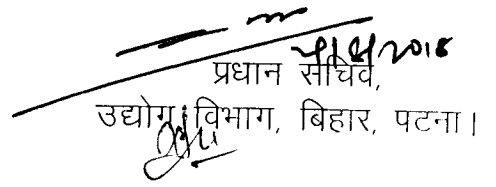 प्रधान सचिव,
उद्योग विभाग, बिहार, पटना।